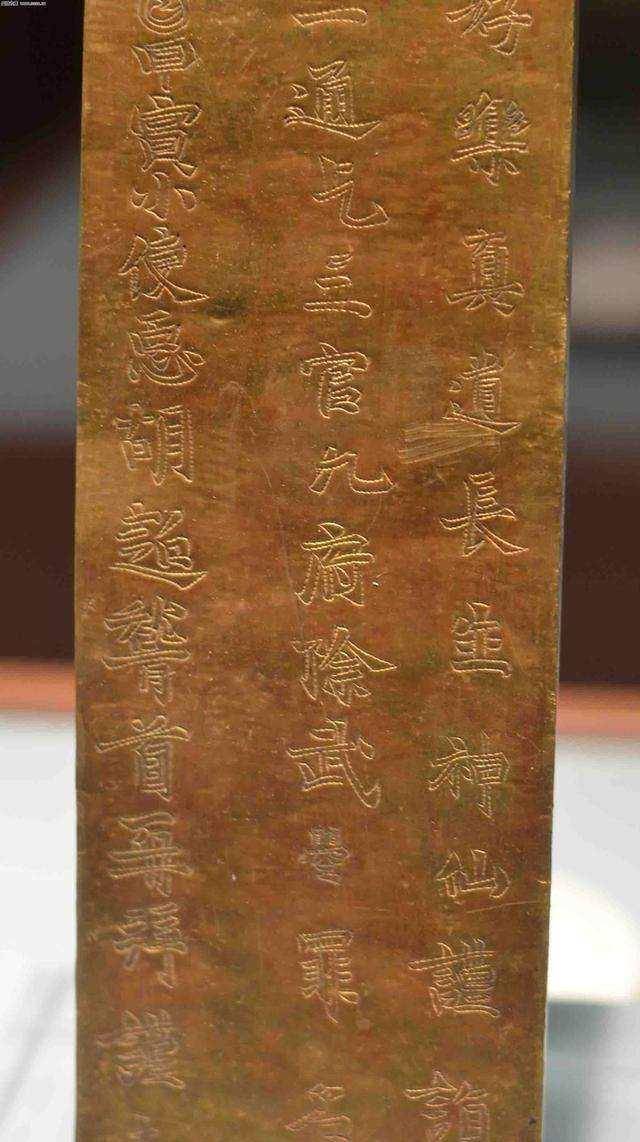 好樂真道長生神仙謹詣
一通乞三官九府除武曌罪名
𡆠甲寅小使𢘑胡超稽首再拜謹